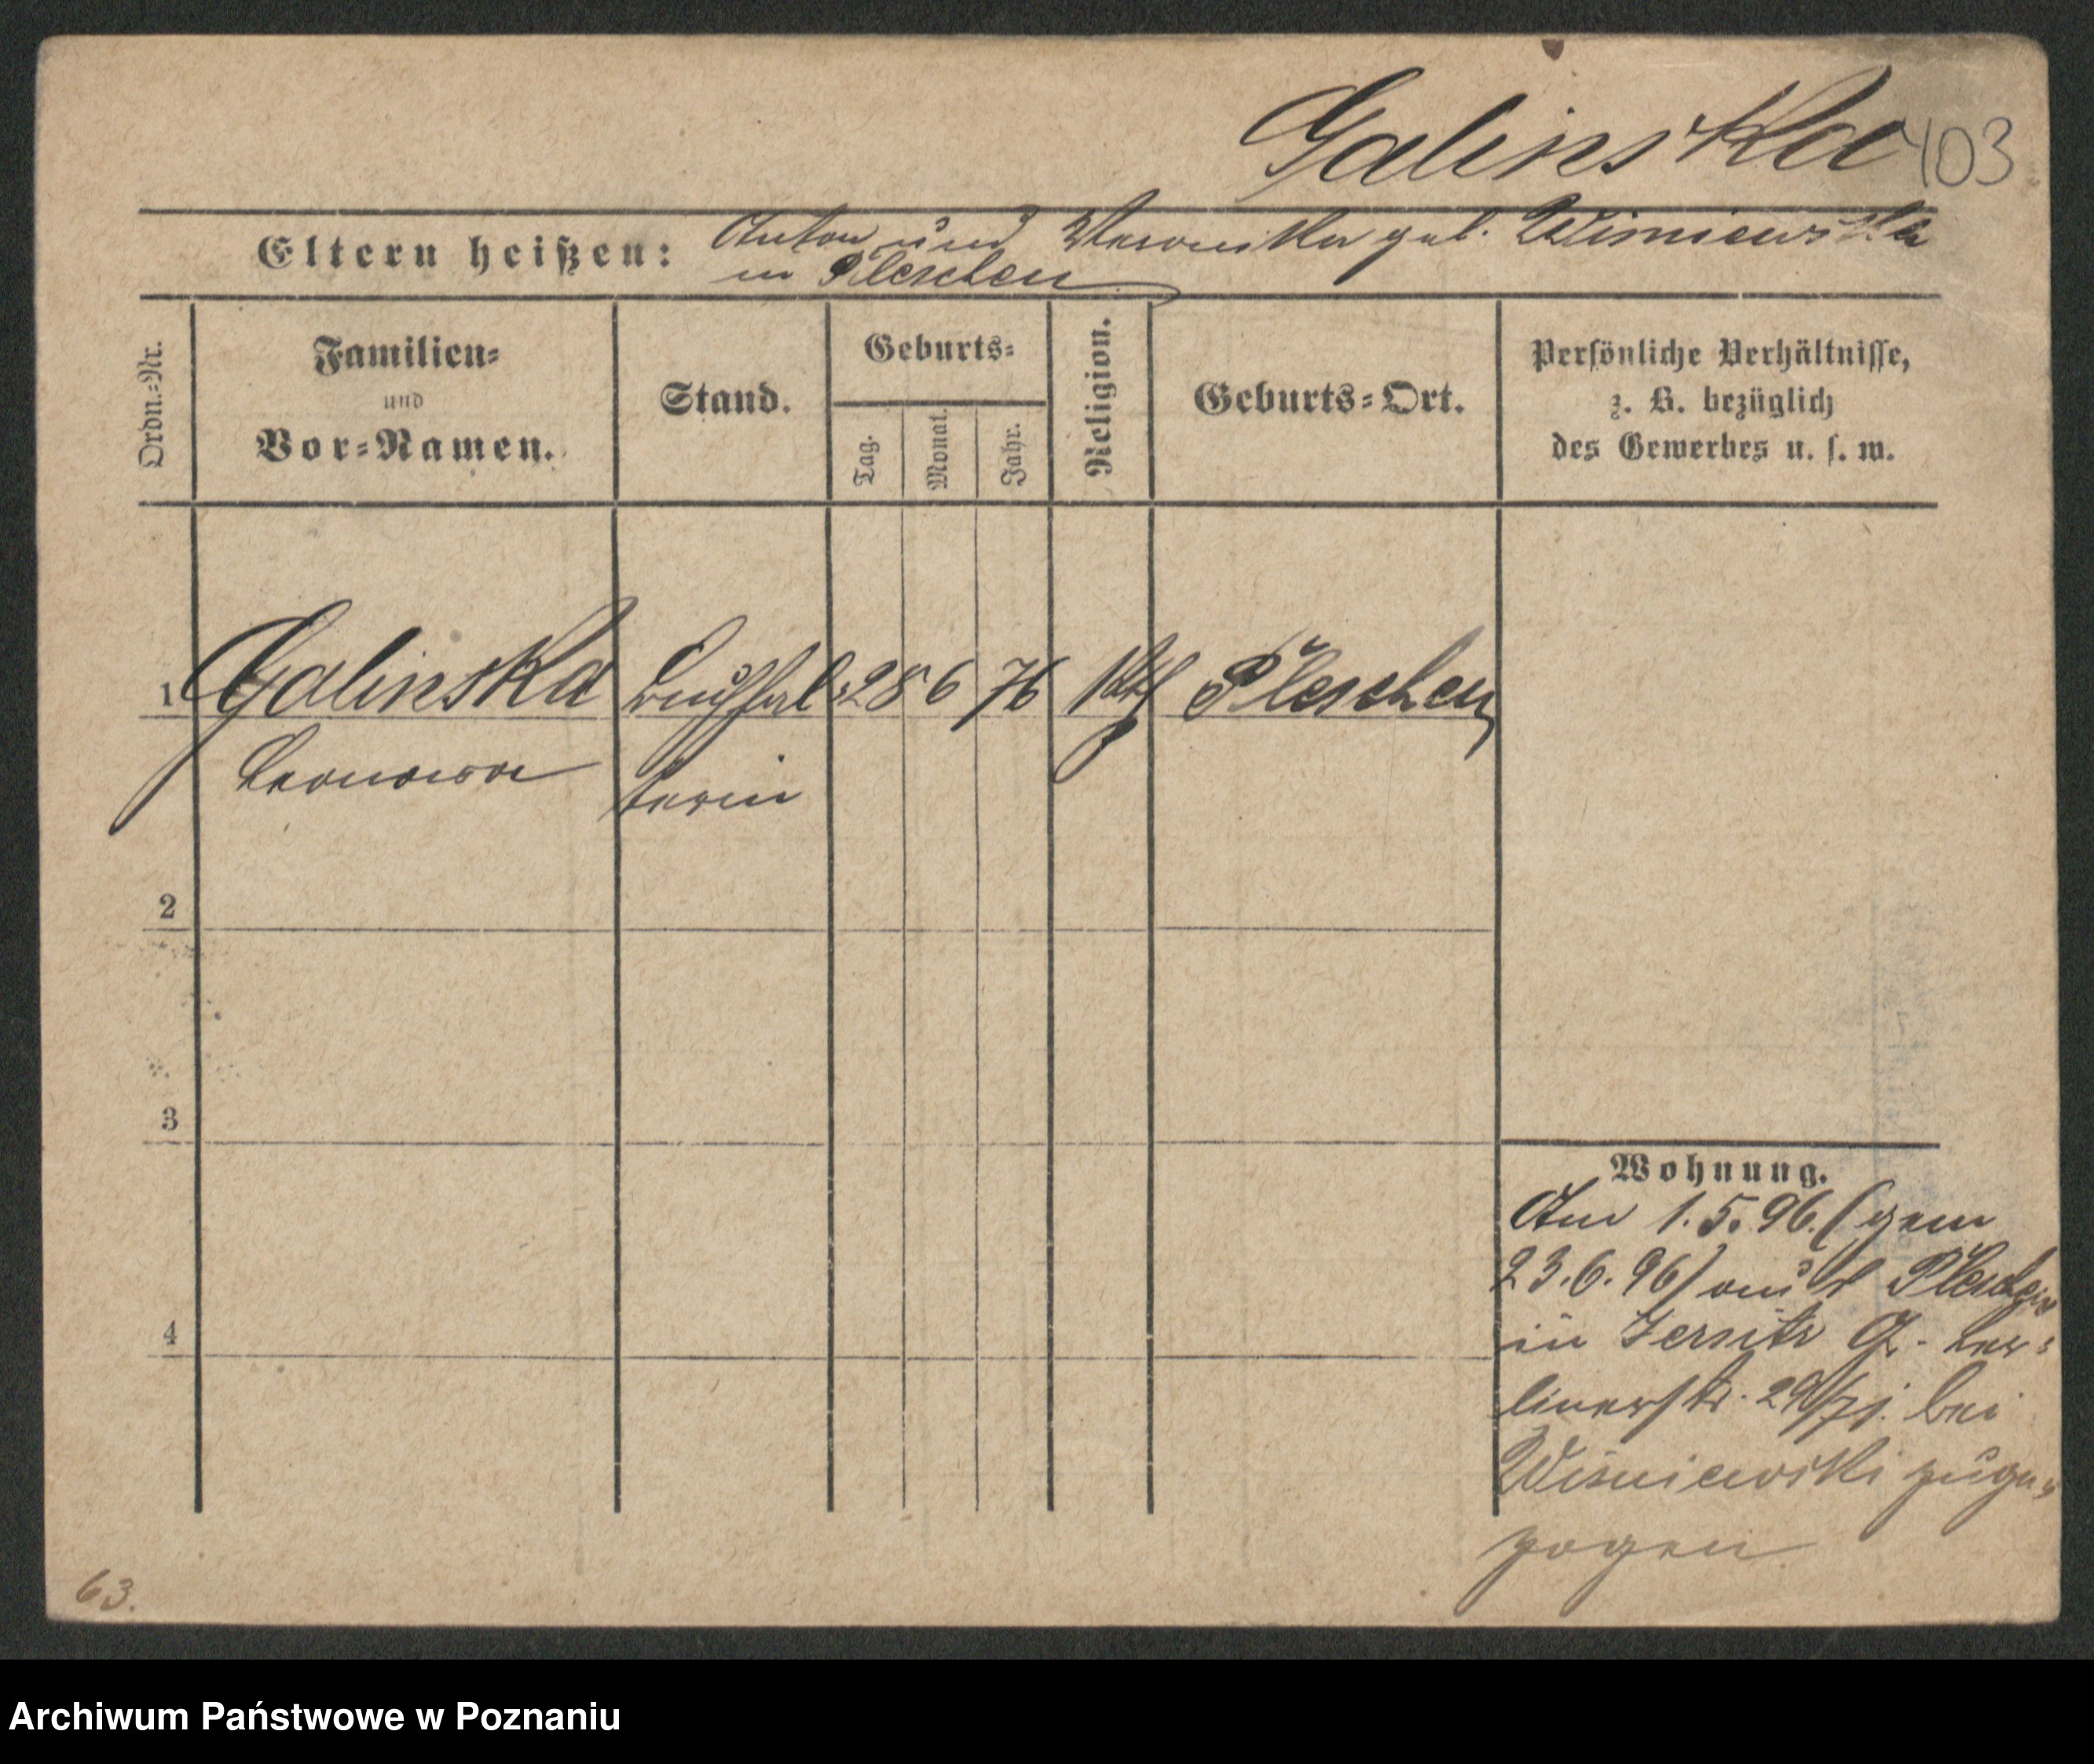 Galinska 103
Eltern heißen: Anton und Veronika geb. Wisniewska
in Pleschen
Ordn.=Nr.
Familien=
und
Vor=Namen.
Stand.
Geburts=
Tag.
Monat.
Jahr.
Religion.
Geburts=Ort.
Persönliche Verhältnisse,
z. B. bezüglich
des Gewerbes u. s. w.
1 Galinska Buchhal= 28 6 76 kth Pleschen
Leonowa terin
2
3
4
Wohnung.
Am 1.5.96. (gem
23.6.96) aus Pleschen
in Jersitz Gr. Ber=
linerstr. bei
Wisniewski zuge=
zogen
63.
Archiwum Państwowe w Poznaniu